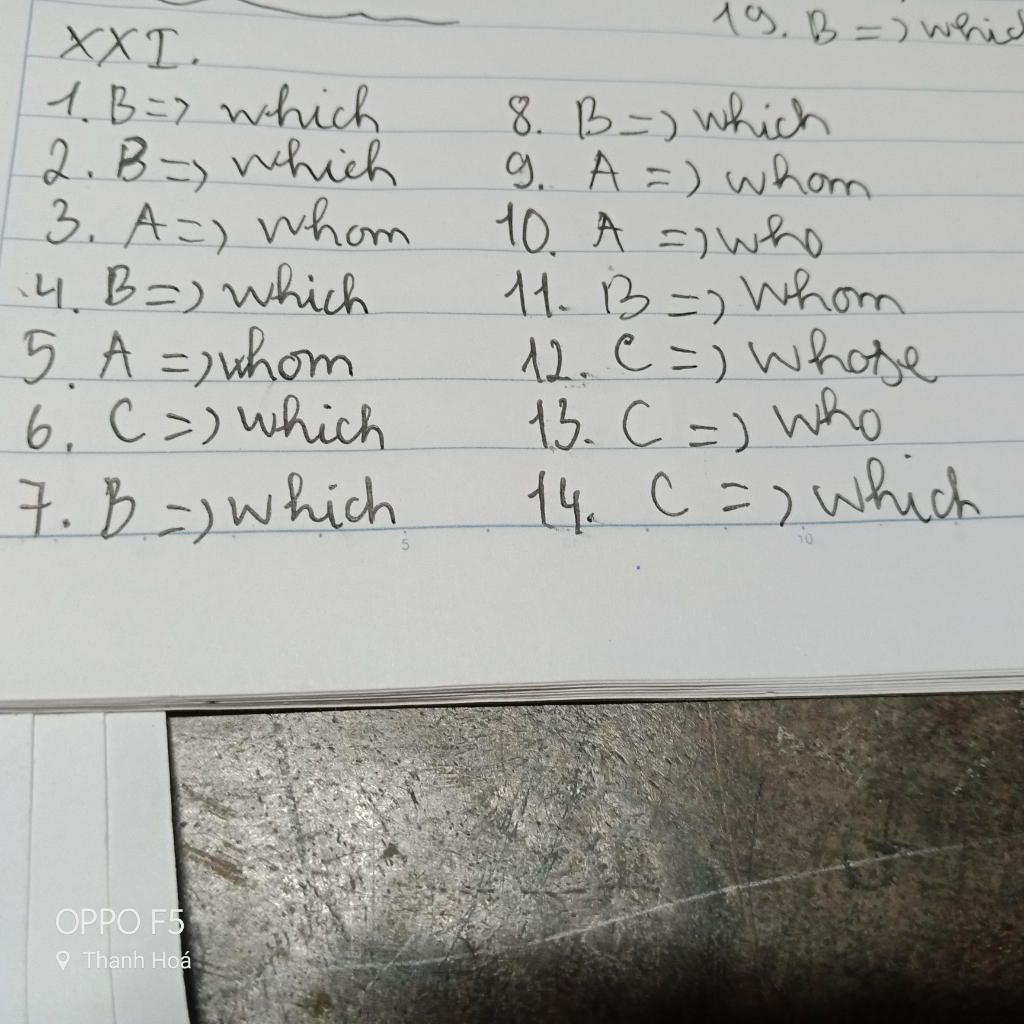 19. B => which
XXI.
1. B => which
2. B => which
3. A => whom
4. B => which
5. A => whom
6. C => which
7. B => which
8. B => which
9. A => whom
10. A => who
11. B => whom
12. C => whose
13. C => who
14. C => which
5
10
OPPO F5
Thanh Hoá